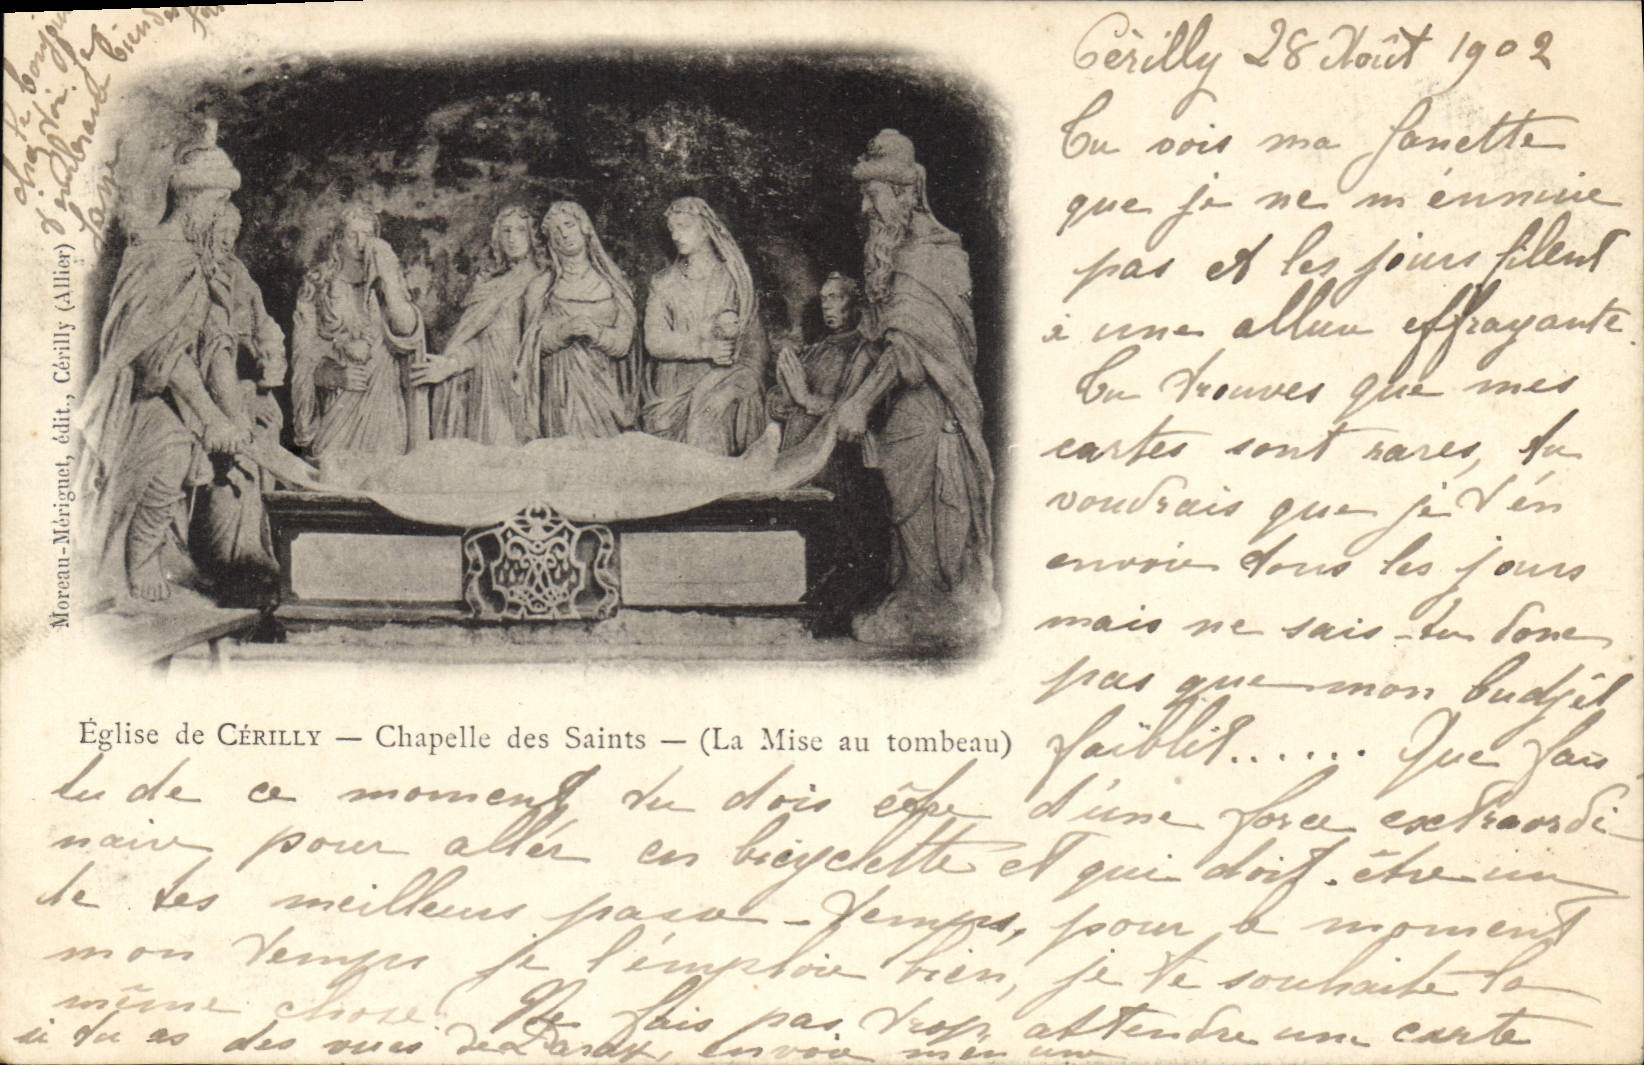 Cérilly 28 Août 1902
Tu vois ma Janette
que je ne m'énnuie
pas et les jours filent
à une allure effrayante.
Tu trouves que mes
cartes sont rares, tu
voudrais que je t'én
envoie tous les jours
mais ne sais-tu donc
pas que mon budjêt
faiblit...... Que fais
tu de ce moment tu dois être d'une force extraordi
naire pour allér en bicyclette et qui doit être un
de tes meilleurs passe-temps, pour le moment
mon temps je l'émploie bien, je te souhaite la
même chose. Ne fais pas trop attendre une carte
si tu as des vues de envoie m'én une
Jane
Moreau-Mériguet, édit., Cérilly (Allier)
Église de CÉRILLY — Chapelle des Saints — (La Mise au tombeau)